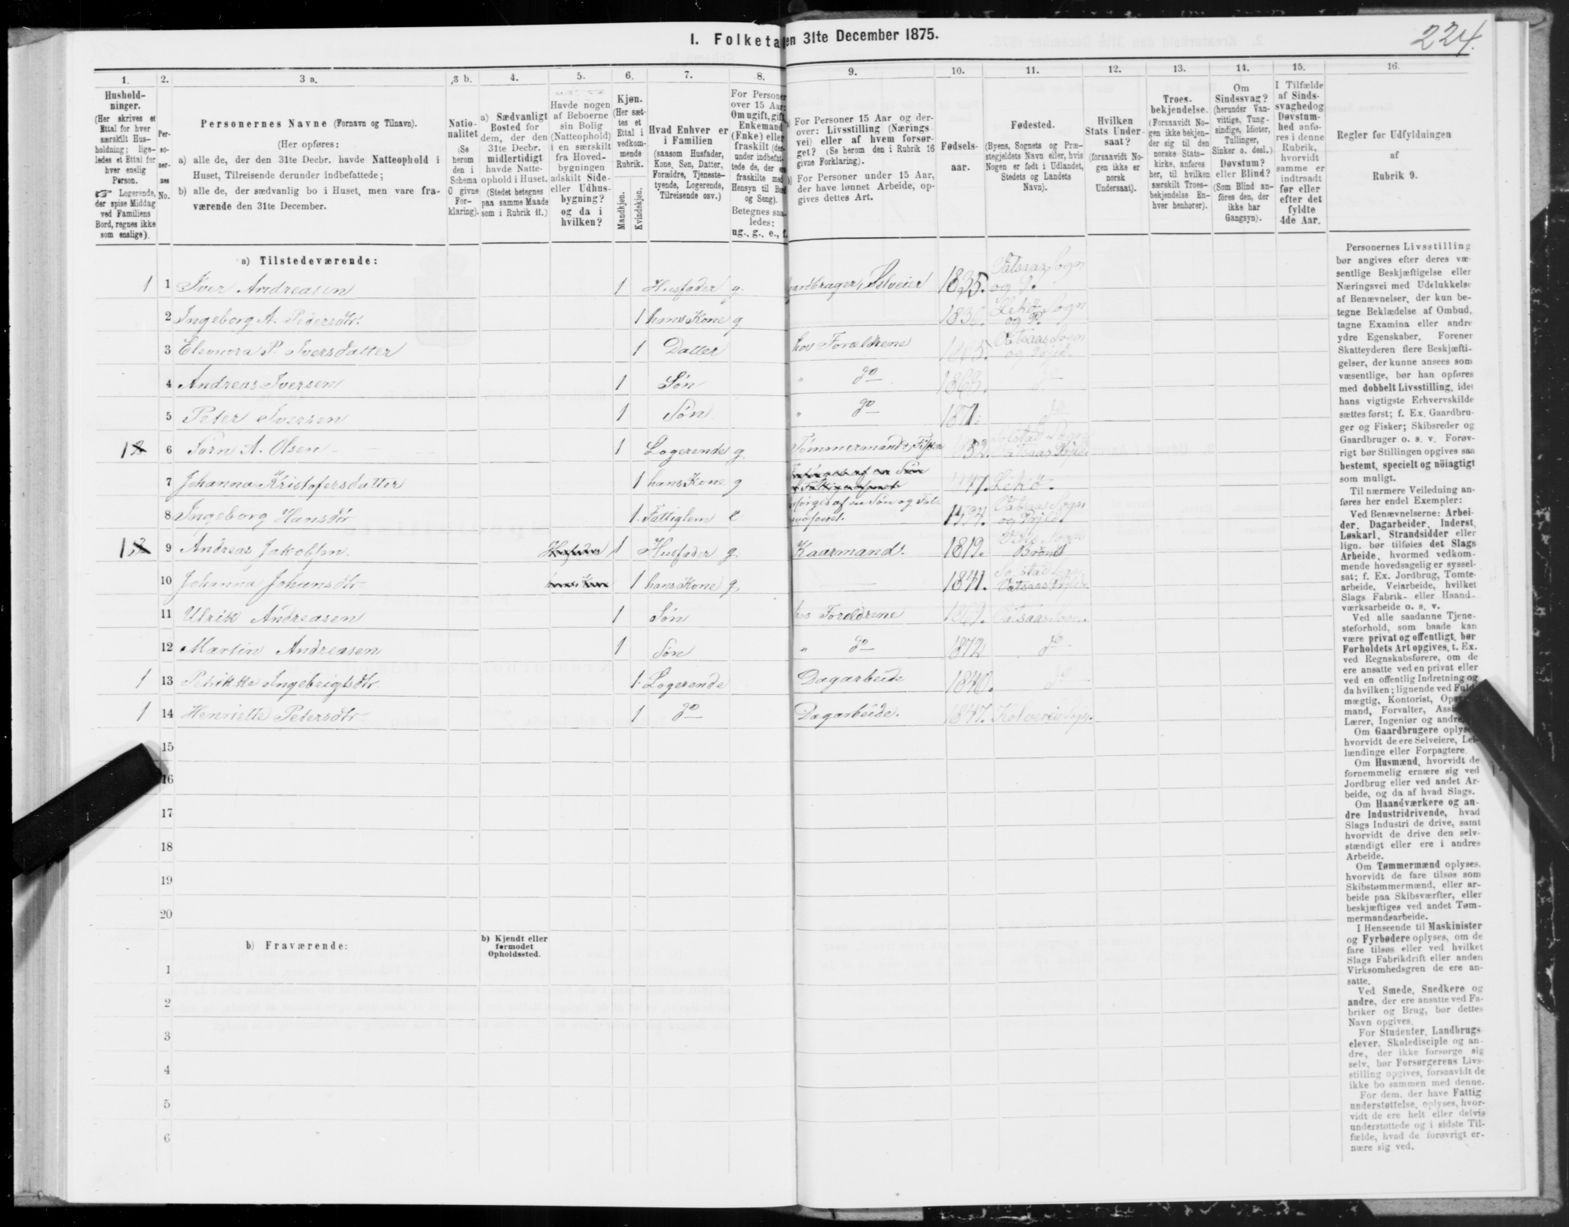 224.
I. Folketa en 31te December 1875.
1. 2. 3 a. 3 b. 4. 5. 6. 7. 8. 9. 10. 11. 12. 13. 14. 15. 16.
Hushold-
ninger.
(Her skrives et
Ettal for hver
særskilt Hus-
holdning; lige-
ledes et Ettal for
hver enslig
Person.
☞ Logerende,
der spise Middag
ved Familiens
Bord, regnes ikke
som enslige).
Per-
so-
ner-
nes
No.
Personernes Navne (Fornavn og Tilnavn).
(Her opføres:
a) alle de, der den 31te Decbr. havde Natteophold i
Huset, Tilreisende derunder indbefattede;
b) alle de, der sædvanlig bo i Huset, men vare fra-
værende den 31te December.
Natio-
nalitet
(Se
herom
den i
Schema
O givne
For-
klaring).
a) Sædvanligt
Bosted for
dem, der den
31te Decbr.
midlertidigt
havde Natte-
ophold i Huset.
(Stedet betegnes
paa samme Maade
som i Rubrik 11.)
Havde nogen
af Beboerne
sin Bolig
(Natteophold)
i en særskilt
fra Hoved-
bygningen
adskilt Side-
eller Udhus-
bygning?
og da i
hvilken?
Kjøn.
(Her sæt-
tes et
Ettal i
vedkom-
mende
Rubrik.
Mandkjøn.
Kvindekjøn.
Hvad Enhver er
i Familien
(saasom Husfader,
Kone, Søn, Datter,
Forældre, Tjeneste-
tyende, Logerende,
Tilreisende osv.)
For Persone
over 15 Aa
Om ugift, gift
Enkemand
(Enke) elle
fraskilt (der
under indbefat-
tede de, der e
fraskilte med
Hensyn til Bo
og Seng).
Betegnes saa-
ledes:
ug., g., e., f.
For Personer 15 Aar og der-
over: Livsstilling (Nærings
vei) eller af hvem forsør-
get? (Se herom den i Rubrik 16
givne Forklaring).
For Personer under 15 Aar,
der have lønnet Arbeide, op-
gives dettes Art.
Fødsels-
aar.
Fødested.
(Byens, Sognets og Præ-
stegjeldets Navn eller, hvis
Nogen er født i Udlandet,
Stedets og Landets
Navn).
Hvilken
Stats Under-
saat?
(forsaavidt No-
gen ikke er
norsk
Undersaat).
Troes-
bekjendelse.
(Forsaavidt No-
gen ikke bekjen-
der sig til den
norske Stats-
kirke, anføres
her, til hvilken
særskilt Troes-
bekjendelse En-
hver henhører).
Om
Sindssvag?
(herunder Van-
vittige, Tung-
sindige, Idioter,
Tullinger,
Sinker o. desl.)
Døvstum?
eller Blind?
(Som Blind an-
føres den, der
ikke har
Gangsyn).
I Tilfælde
af Sinds-
svaghedog
Døvstum-
hed anfø-
res i denne
Rubrik,
hvorvidt
samme er
indtraadt
før eller
efter det
fyldte
4de Aar.
Regler før Udfyldningen
af
Rubrik 9.
a) Tilstedeværende:
1 1 Iver Andreasen 1 Husfader g. Selveier 1835. Sogn
2 Ingeborg A. Pedersdtr. 1 hans Kone g Sogn
3 Eleonora P. Iversdatter 1 Datter hos Forældrene Sogn
4 Andreas Iversen 1 Søn „ do do
5 Peter Iversen 1 Søn „ do 1871. do
1 6 A. Olsen 1 Logerende g
7 Johanna Kristofersdatter 1 hans Kone g
8 Ingeborg Hansdtr 1 Fattiglem e
1 9 Andreas Jakobsen 1 Husfader g. Kaarmand. 1819.
10 Johanna Johansdtr 1 hans Kone g. 1841.
11 Ulrik Andreasen 1 Søn hos Foreldrene
12 Martin Andreasen 1 Søn „ do 1872 do
1 13 Ingebrigtsdtr. 1 Logerende Dagarbeide 1840. do
1 14 Henriette Petersdtr 1 do Dagarbeide. 1847.
15
16
17
18
19
20
b) Fraværende:
b) Kjendt eller
formodet
Opholdssted.
1
2
3
4
5
6
Personernes Livsstilling
bør angives efter deres væ-
sentlige Beskjæftigelse eller
Næringsvei med Udelukkelse
af Benævnelser, der kun be-
tegne Beklædelse af Ombud,
tagne Examina eller andre
ydre Egenskaber. Forener
Skatteyderen flere Beskjæfti-
gelser, der kunne ansees som
væsentlige, bør han opføres
med dobbelt Livsstilling, idet
hans vigtigste Erhvervskilde
sættes først; f. Ex. Gaardbru-
ger og Fisker; Skibsreder og
Gaardbruger o. s. v. Forøv-
rigt bør Stillingen opgives saa
bestemt, specielt og nøiagtigt
som muligt.
Til nærmere Veiledning an-
føres her endel Exempler:
Ved Benævnelserne: Arbei-
der, Dagarbeider, Inderst,
Løskarl, Strandsidder eller
lign. bør tilføies det Slags
Arbeide, hvormed vedkom-
mende hovedsagelig er syssel-
sat; f. Ex. Jordbrug, Tomte-
arbeide, Veiarbeide, hvilket
Slags Fabrik- eller Haand-
værksarbeide o. s. v.
Ved alle saadanne Tjene-
steforhold, som baade kan
være privat og offentligt, bør
Forholdets Art opgives, t. Ex.
ved Regnskabsførere, om de
ere ansatte ved en privat eller
ved en offentlig Indretning og
da hvilken; lignende ved Fuld-
mægtig, Kontorist, Op
mand, Forvalter, Ass
Lærer, Ingeniør og andre
Om Gaardbrugere oplys
hvorvidt de ere Selveiere, Lei-
lændinge eller Forpagtere.
Om Husmænd, hvorvidt de
fornemmelig ernære sig ved
Jordbrug eller ved andet Ar-
beide, og da af hvad Slags.
Om Haandværkere og an-
dre Industridrivende, hvad
Slags Industri de drive, samt
hvorvidt de drive den selv-
stændigt eller ere i andres
Arbeide.
Om Tømmermænd oplyses,
hvorvidt de fare tilsøs som
Skibstømmermænd, eller ar-
beide paa Skibsværfter, eller
beskjæftiges ved andet Tøm-
mermandsarbeide.
I Henseende til Maskinister
og Fyrbødere oplyses, om de
fare tilsøs eller ved hvilket
Slags Fabrikdrift eller anden
Virksomhedsgren de ere an-
satte.
Ved Smede, Snedkere og
andre, der ere ansatte ved Fa-
briker og Brug, bør dettes
Navn opgives.
For Studenter, Landbrugs-
elever, Skoledisciple og an-
dre, der ikke forsørge sig
selv, bør Forsørgerens Livs-
stilling opgives, forsaavidt de
ikke bo sammen med denne.
For dem, der have Fattig-
understøttelse, oplyses, hvor-
vidt de ere helt eller delvis
understøttede og i sidste Til-
fælde, hvad de forøvrigt er-
nære sig ved.